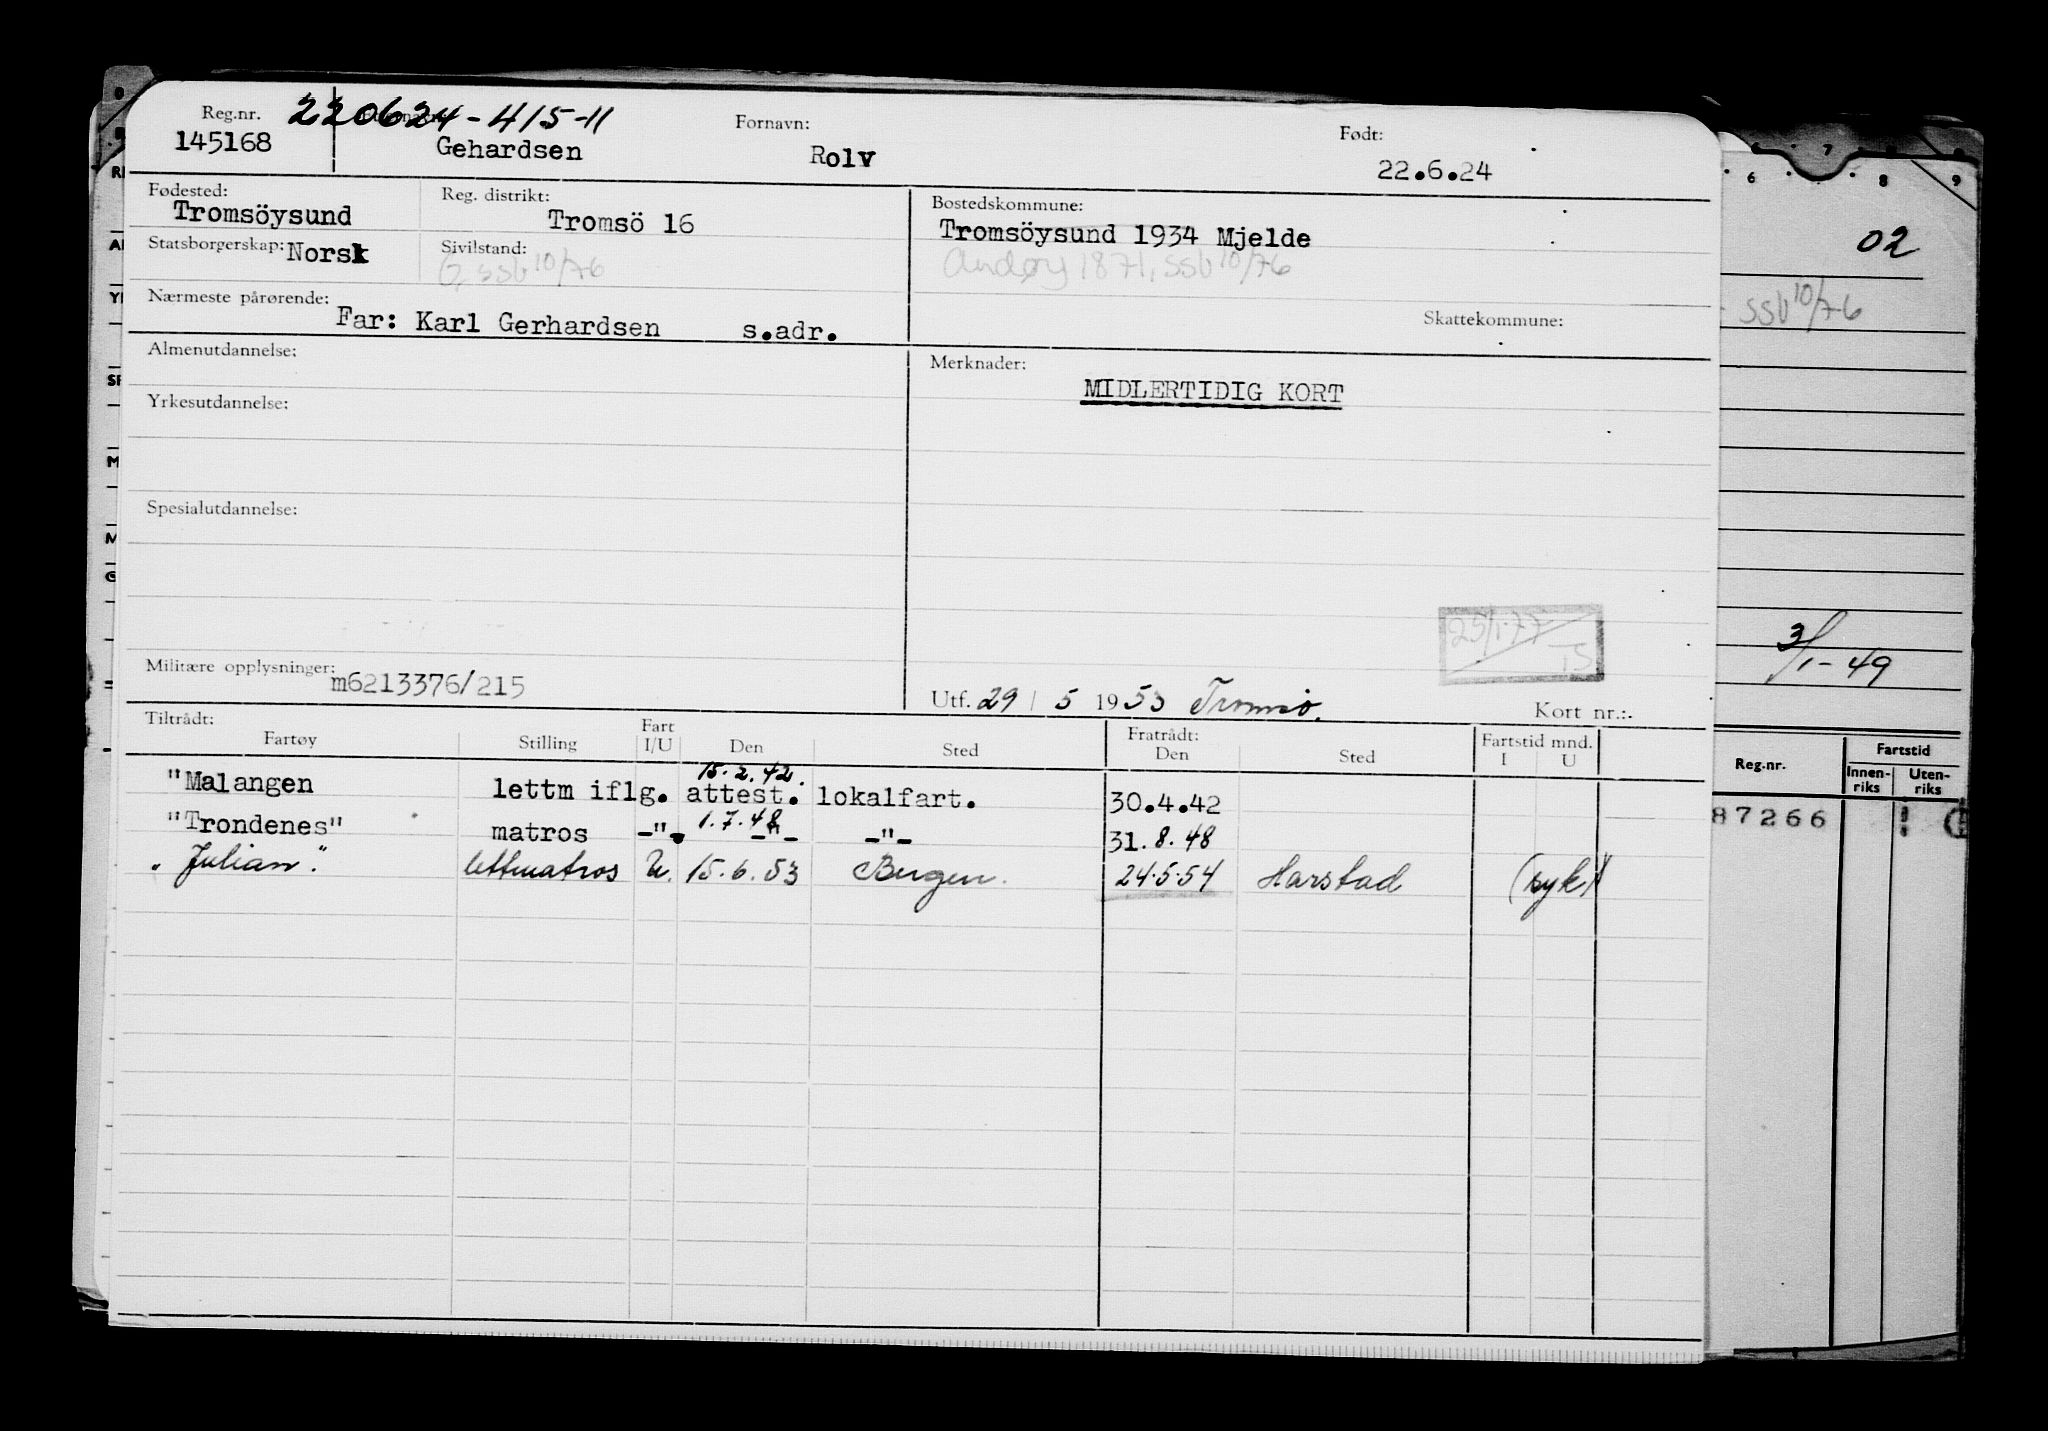 Reg.nr. 220624-415-11 Fornavn: Født:
145168 Gehardsen Rolv 22.6.24
Fødested: Reg. distrikt: Bostedskommune:
Tromsöysund Tromsö 16 Tromsöysund 1934 Mjelde
Statsborgerskap: Norsk Sivilstand: G, ssb 10/76 Andøy 1871, ssb 10/76
Nærmeste pårørende: Far: Karl Gerhardsen s.adr. Skattekommune:
Almenutdannelse: Merknader:
MIDLERTIDIG KORT
Yrkesutdannelse:
Spesialutdannelse:
25/1-77 TS
Militære opplysninger: m6213376/215 Utf. 29 / 5 1953 Tromsø. Kort nr.:-
Tiltrådt: Fratrådt: Fartstid mnd.
Fartøy Stilling Fart I/U Den Sted Den Sted I U
"Malangen lettm iflg. attest. 15.2.42. lokalfart. 30.4.42
"Trondenes" matros -"- 1.7.48 -"- -"- 31.8.48
"Julian" lettmatros U. 15.6.53 Bergen. 24.5.54 Harstad (syk)
6 7 8 9
02
ssb 10/76
3/1-49
Reg.nr. Fartstid
Innen-riks Uten-riks
87266